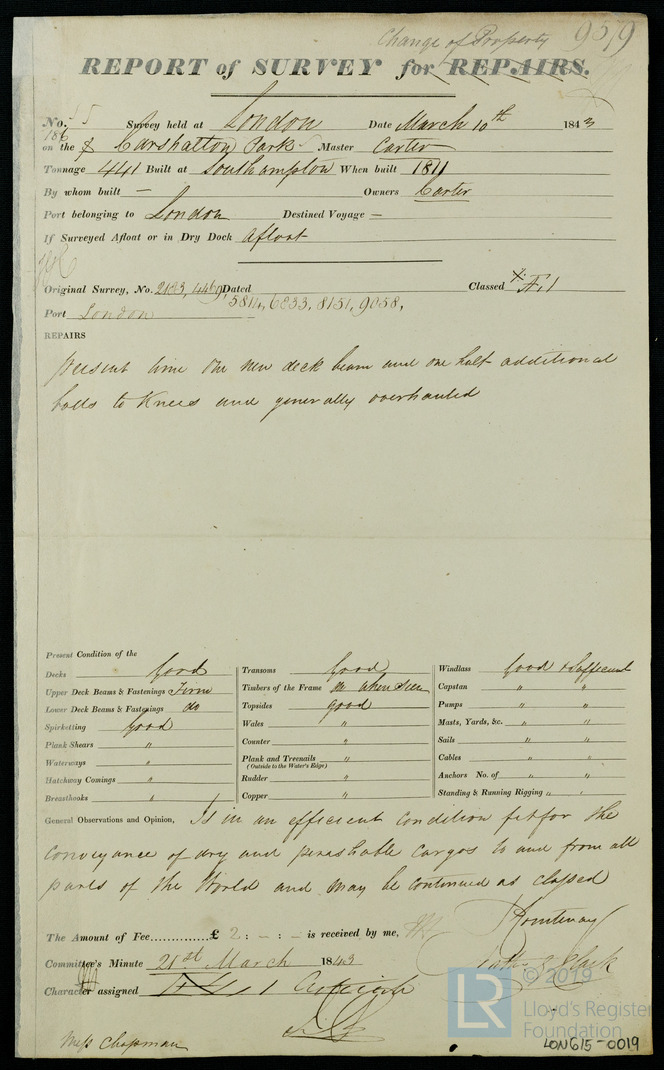 Change of Property 9579
REPORT of SURVEY for REPAIRS.
No. 15 Survey held at London Date March 10th 1843
186
on the Carshalton Park Master Carter
Tonnage 441 Built at Southampton When built 1811
By whom built — Owners Carter
Port belonging to London Destined Voyage —
If Surveyed Afloat or in Dry Dock Afloat
Original Survey, No. 2183, 4469, Dated Classed Æ 1
5814, 6833, 8151, 9058,
Port London
REPAIRS
Present time one new deck beam and one half additional
bolts to Knees and generally overhauled
Present Condition of the
Decks Good
Upper Deck Beams & Fastenings Firm
Lower Deck Beams & Fastenings do
Spirketting Good
Plank Shears "
Waterways "
Hatchway Comings "
Breasthooks "
Transoms Good
Timbers of the Frame when seen
Topsides good
Wales "
Counter "
Plank and Treenails "
(Outside to the Water's Edge)
Rudder "
Copper "
Windlass Good & Sufficient
Capstan " "
Pumps " "
Masts, Yards, &c. " "
Sails " "
Cables " "
Anchors No. of " "
Standing & Running Rigging " "
General Observations and Opinion, Is in an efficient condition fit for the
conveyance of dry and perishable cargos to and from all
parts of the World and may be continued as classed
The Amount of Fee £ 2 : - : - is received by me,
Courtenay
Committee's Minute 21st March 1843
Nath. Clark
Character assigned
Mess Chapman
© 2019
LR
Lloyd's Register
Foundation
LON615-0019